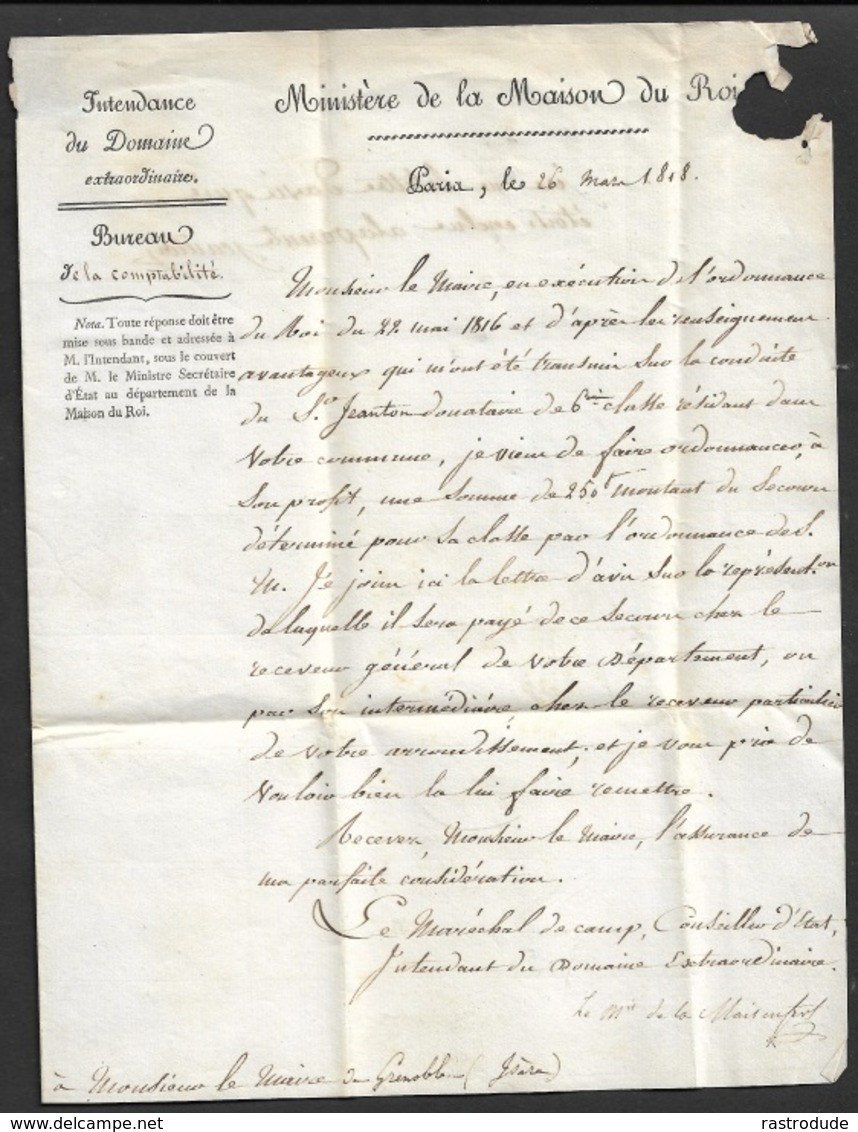 Intendance
du Domaine
extraordinaire.
Bureau
de la comptabilité.
Nota. Toute réponse doit être
mise sous bande et adressée à
M. l'Intendant, sous le couvert
de M. le Ministre Secrétaire
d'État au département de la
Maison du Roi.
Ministère de la Maison du Roi
Paris, le 26 Mars 1818.
Monsieur le Maire, en exécution de l'ordonnance
du Roi du 22 mai 1816 et d'après les renseignemens
avantageux qui m'ont été transmis sur la conduite
du S.r Jeanton donataire de 6me classe résidant dans
votre commune, je viens de faire ordonnancer, à
son profit, une somme de 250f montant du secours
déterminé pour sa classe par l'ordonnance de S.
M. Je joins ici la lettre d'avis sur la représent.on
de laquelle il sera payé de ce secours chez le
receveur général de votre Département, ou
par son intermédiaire, chez le receveur particulier
de votre arrondissement; et je vous prie de
vouloir bien la lui faire remettre.
Recevez, Monsieur le Maire, l'assurance de
ma parfaite considération.
Le Maréchal de camp, Conseiller d'Etat,
Intendant du Domaine Extraordinaire.
Le Mis de la Maisonfort
à Monsieur le Maire de Grenoble (Isère)
www.delcampe.net
rastrodude